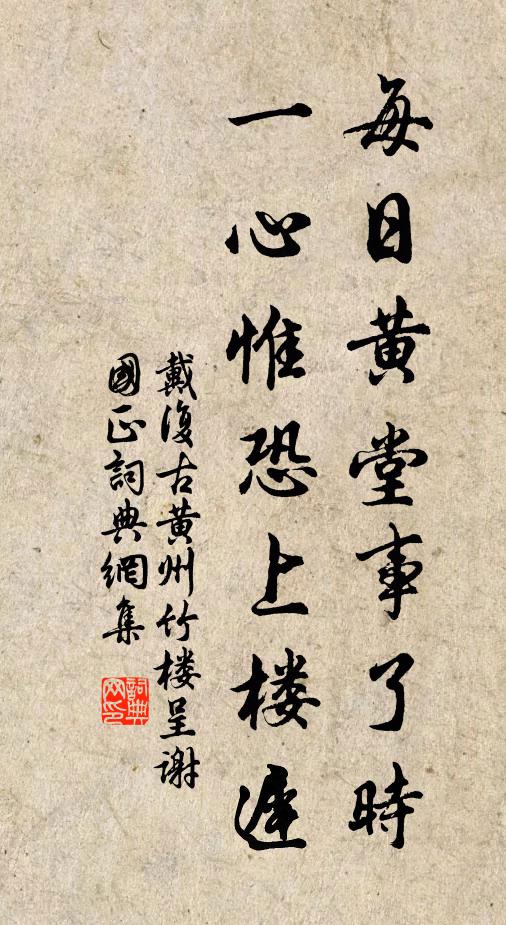 每日黄堂事了時
一心惟恐上楼遲
戴復古黄州竹楼呈謝
國正詞典網集
詞典
网印